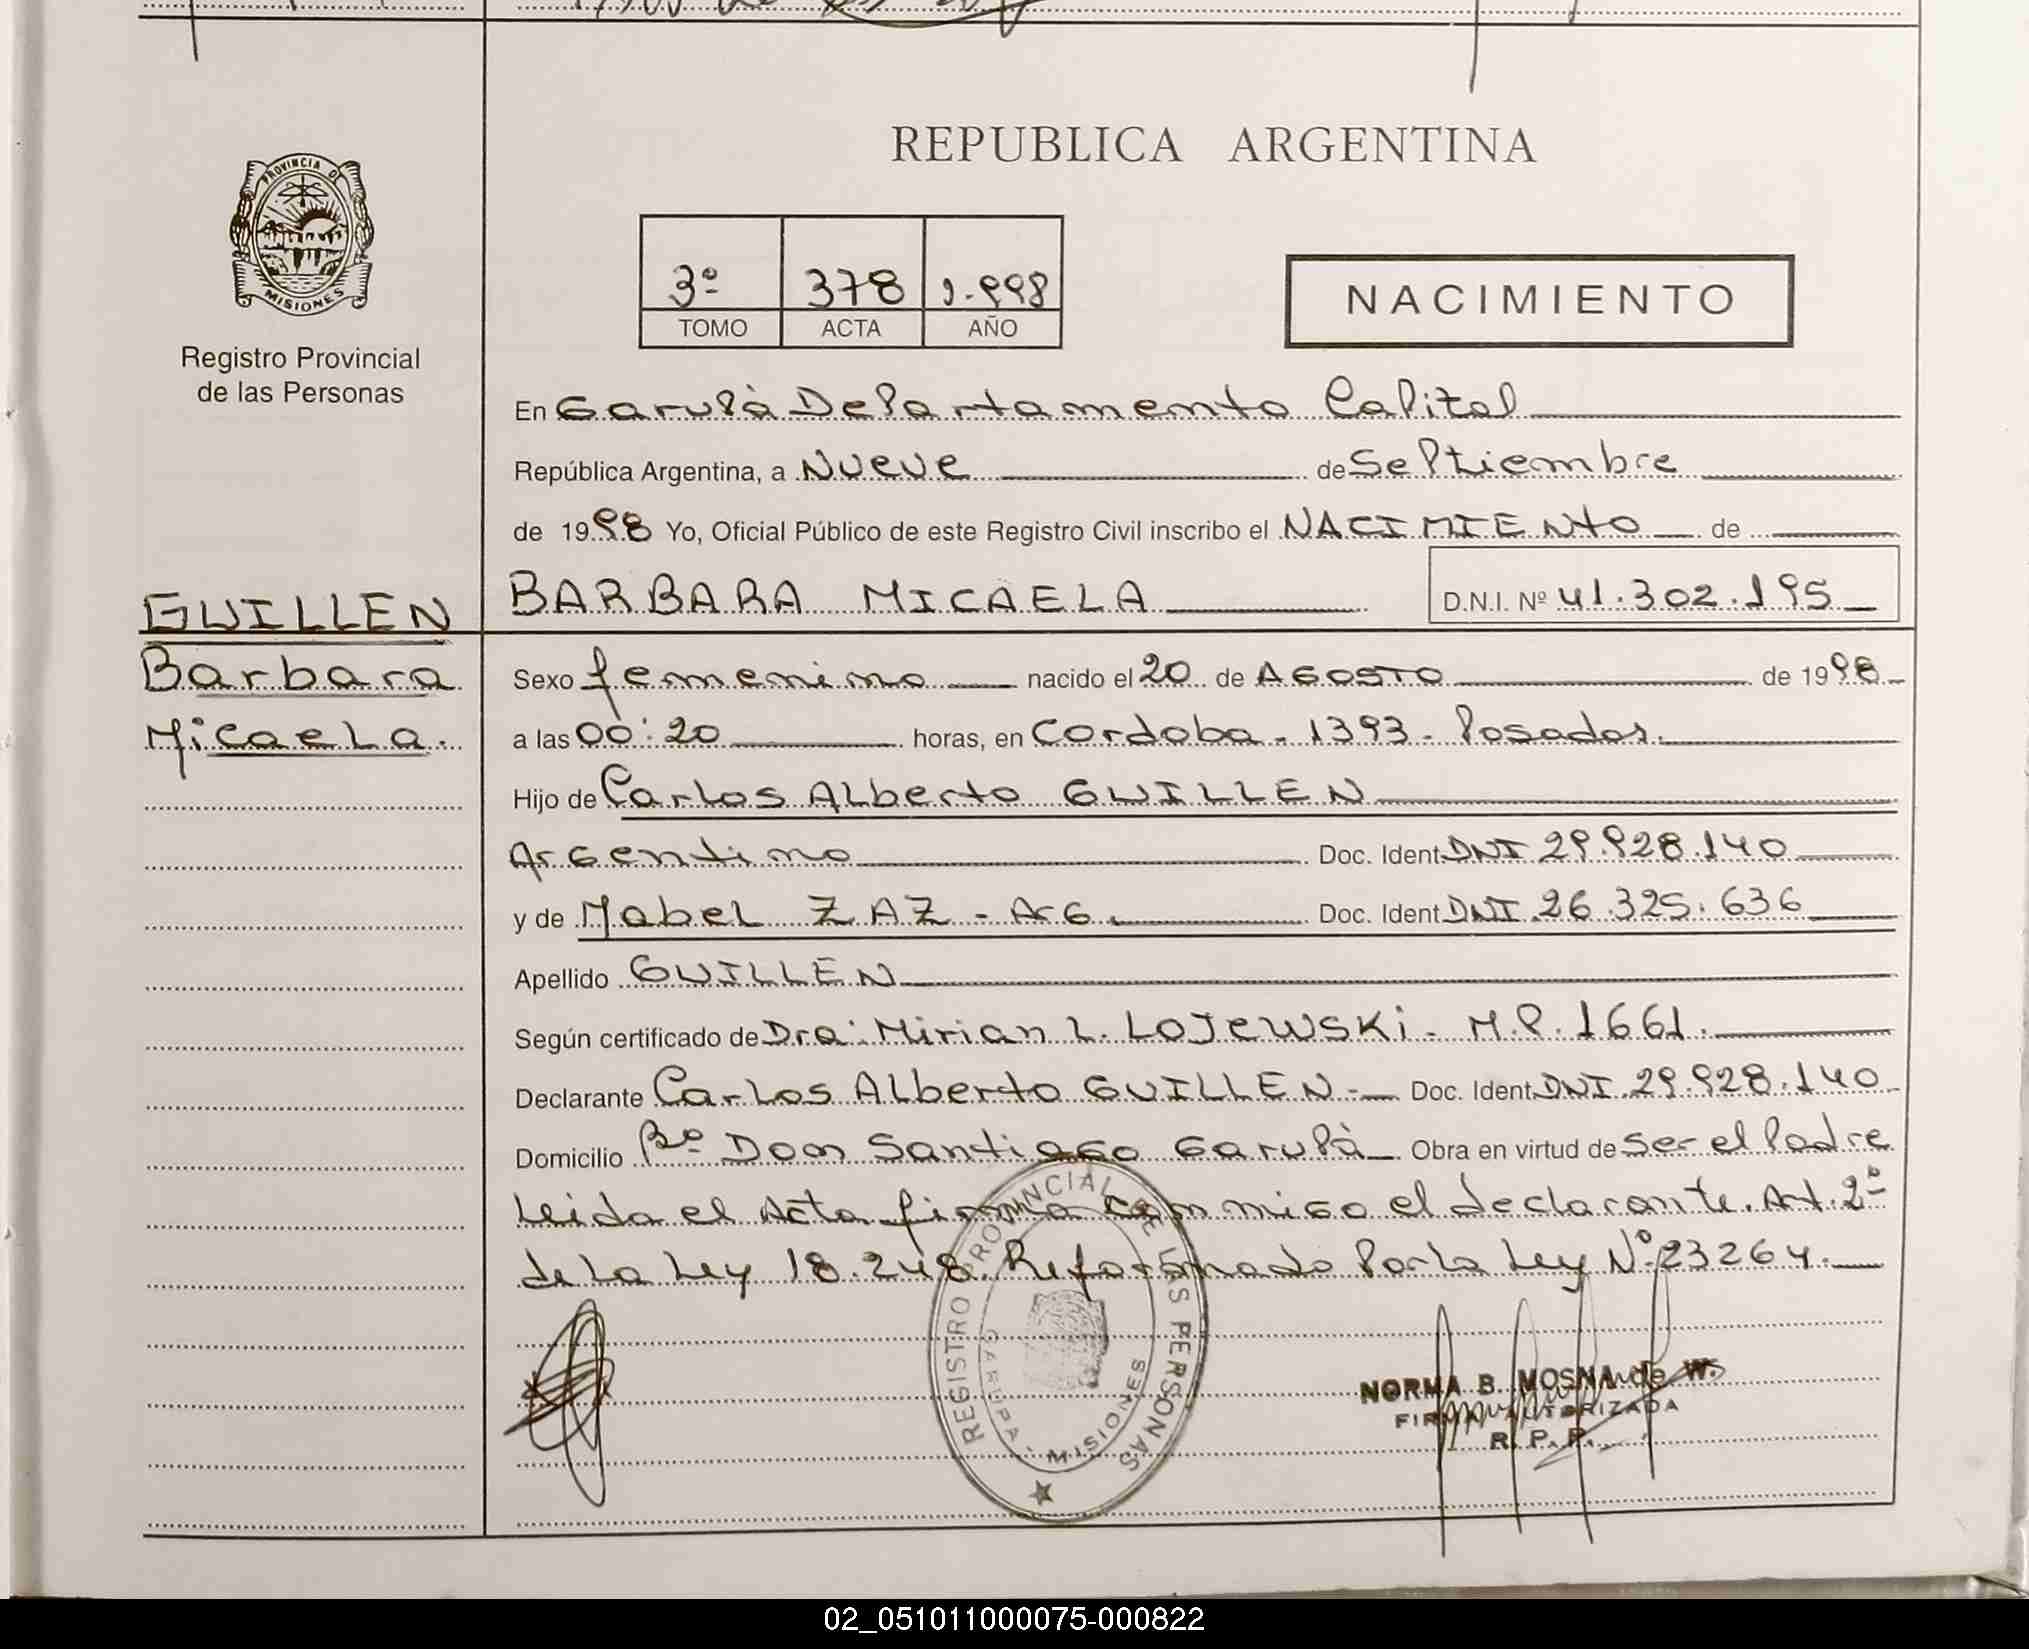 PROVINCIA D
MISIONES
Registro Provincial
de las Personas
GUILLEN
Barbara
Micaela.
REPUBLICA ARGENTINA
3º 378 1.998
TOMO ACTA AÑO
NACIMIENTO
En Garupà Departamento Capital
República Argentina, a Nueve de Septiembre
de 1998 Yo, Oficial Público de este Registro Civil inscribo el NACIMIENTO de
BARBARA MICAELA D.N.I. Nº 41.302.195
Sexo femenino nacido el 20 de AGOSTO de 1998
a las 00:20 horas, en Cordoba - 1393 - Posadas.
Hijo de Carlos Alberto GUILLEN
Argentino Doc. Ident. DNI 29.928.140
y de Mabel ZAZ - Arg. Doc. Ident. DNI. 26.325.636
Apellido GUILLEN
Según certificado de Dra: Mirian L. LOJEWSKi - M.P. 1661.
Declarante Carlos Alberto GUILLEN - Doc. Ident. DNI. 29.928.140
Domicilio Bº Don Santiago Garupà Obra en virtud de ser el Padre
Leida el Acta firma conmigo el declarante. Art. 2º
de la Ley 18.248. Reformado Por la Ley Nº 23264.
REGISTRO PROVINCIAL DE LAS PERSONAS
GARUPA - MISIONES
NORMA B. MOSNA de W.
FIRMA AUTORIZADA
R. P. P.
02_051011000075-000822